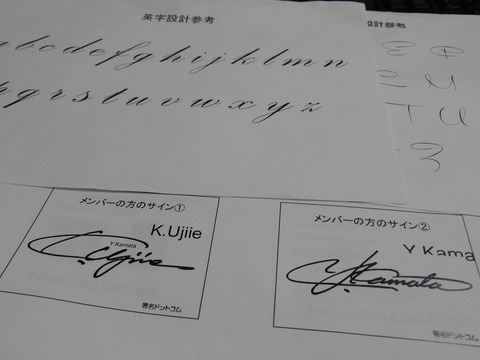 英字設計参考
a b c d e f g h i j k l m n
p q r s t u v w x y z
設計参考
E
M
T U
3
メンバーの方のサイン①
K.Ujiie
Y Kamata
K.Ujiie
署名ドットコム
メンバーの方のサイン②
Y Kama
Y.Kamata
署名ドットコム